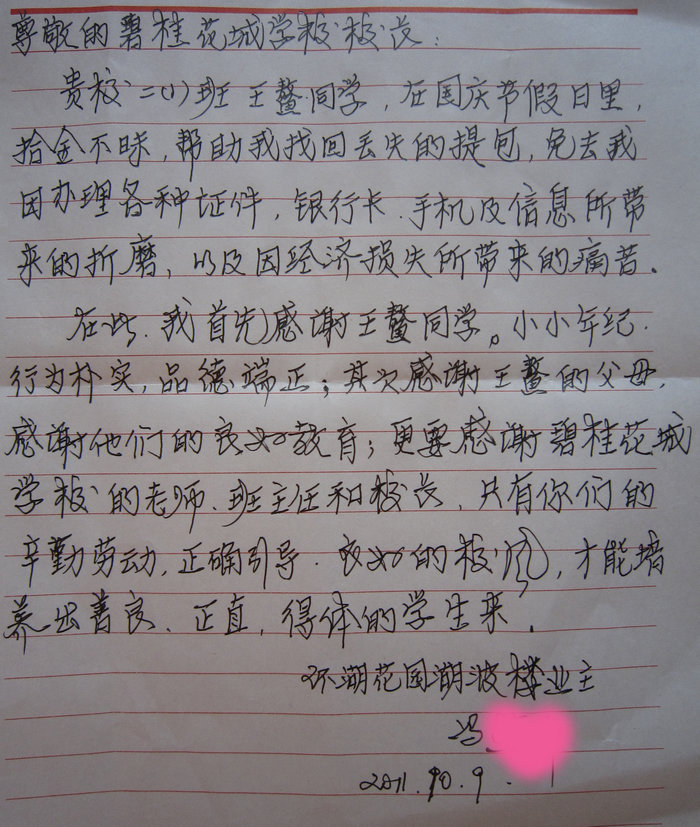 尊敬的碧桂花城学校校长:
贵校二(1)班王鳌同学,在国庆节假日里,
拾金不昧,帮助我找回丢失的提包,免去我
因办理各种证件,银行卡.手机及信息所带
来的折磨,以及因经济损失所带来的痛苦.
在此.我首先感谢王鳌同学。小小年纪.
行为朴实,品德端正;其次感谢王鳌的父母,
感谢他们的良好教育;更要感谢碧桂花城
学校的老师.班主任和校长,只有你们的
辛勤劳动,正确引导.良好的校风,才能培
养出善良.正直,得体的学生来.
环湖花园湖波楼业主
冯
2011.10.9.